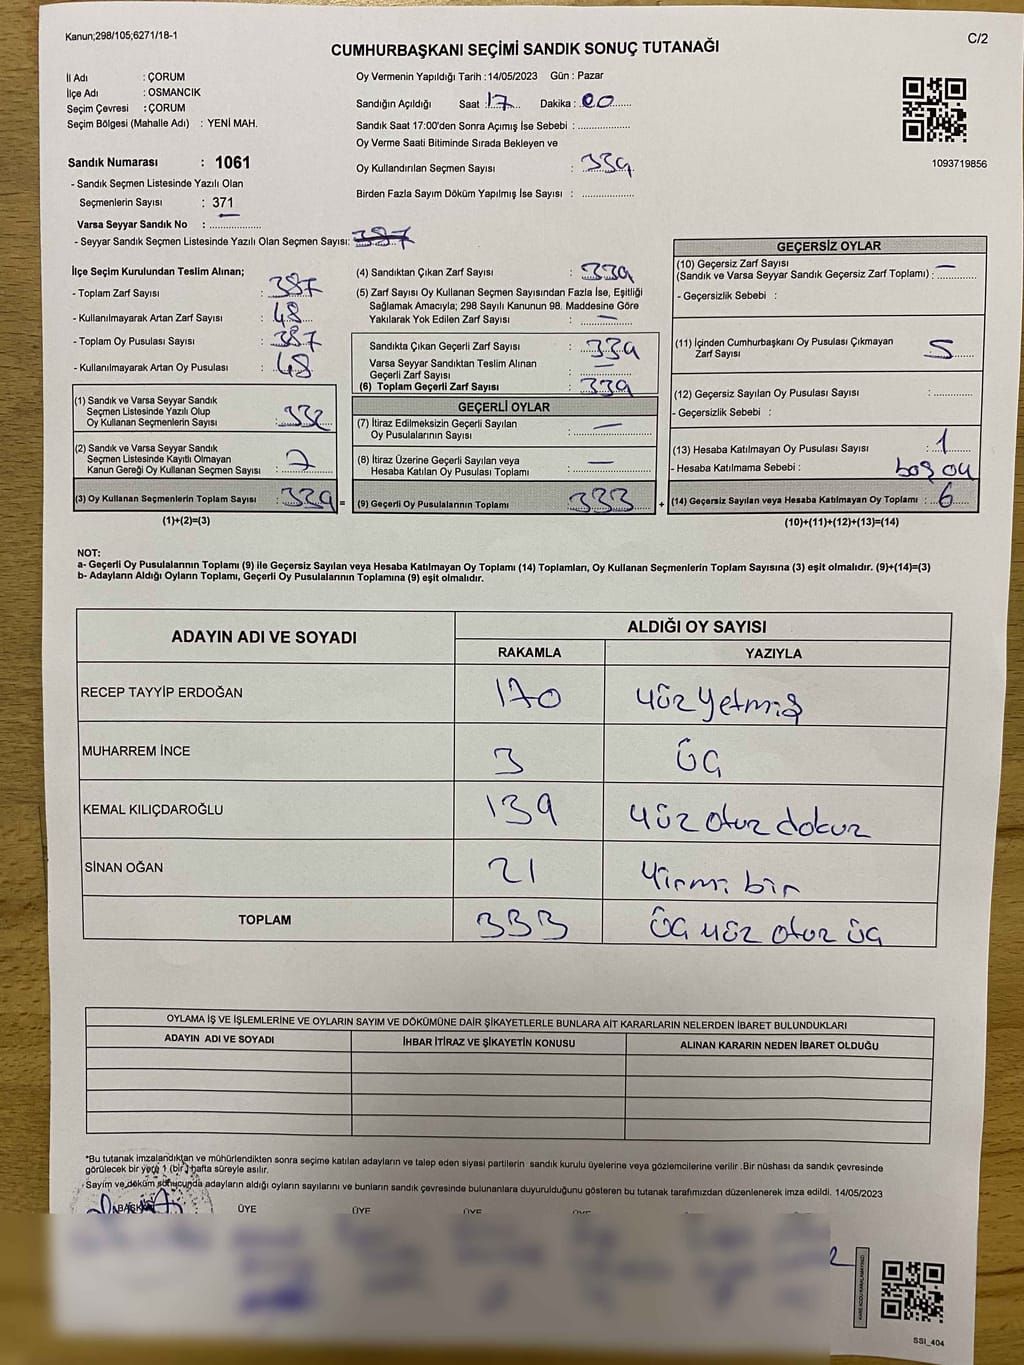 Kanun;298/105;6271/18-1
C/2
CUMHURBAŞKANI SEÇİMİ SANDIK SONUÇ TUTANAĞI
İl Adı : ÇORUM
İlçe Adı : OSMANCIK
Seçim Çevresi : ÇORUM
Seçim Bölgesi (Mahalle Adı) : YENİ MAH.
Sandık Numarası : 1061
- Sandık Seçmen Listesinde Yazılı Olan
Seçmenlerin Sayısı : 371
Varsa Seyyar Sandık No : ....................
- Seyyar Sandık Seçmen Listesinde Yazılı Olan Seçmen Sayısı: 387
Oy Vermenin Yapıldığı Tarih : 14/05/2023 Gün : Pazar
Sandığın Açıldığı Saat : 17 Dakika : 00
Sandık Saat 17:00'den Sonra Açımış İse Sebebi : ................
Oy Verme Saati Bitiminde Sırada Bekleyen ve
Oy Kullandırılan Seçmen Sayısı : 339
Birden Fazla Sayım Döküm Yapılmış İse Sayısı : ................
1093719856
İlçe Seçim Kurulundan Teslim Alınan;
- Toplam Zarf Sayısı : 387
- Kullanılmayarak Artan Zarf Sayısı : 48
- Toplam Oy Pusulası Sayısı : 387
- Kullanılmayarak Artan Oy Pusulası : 48
(1) Sandık ve Varsa Seyyar Sandık
Seçmen Listesinde Yazılı Olup
Oy Kullanan Seçmenlerin Sayısı : 332
(2) Sandık ve Varsa Seyyar Sandık
Seçmen Listesinde Kayıtlı Olmayan
Kanun Gereği Oy Kullanan Seçmen Sayısı : 7
(3) Oy Kullanan Seçmenlerin Toplam Sayısı : 339 =
(1)+(2)=(3)
(4) Sandıktan Çıkan Zarf Sayısı : 339
(5) Zarf Sayısı Oy Kullanan Seçmen Sayısından Fazla İse, Eşitliği
Sağlamak Amacıyla; 298 Sayılı Kanunun 98. Maddesine Göre
Yakılarak Yok Edilen Zarf Sayısı : —
Sandıkta Çıkan Geçerli Zarf Sayısı : 339
Varsa Seyyar Sandıktan Teslim Alınan
Geçerli Zarf Sayısı : —
(6) Toplam Geçerli Zarf Sayısı : 339
GEÇERLİ OYLAR
(7) İtiraz Edilmeksizin Geçerli Sayılan
Oy Pusulalarının Sayısı : —
(8) İtiraz Üzerine Geçerli Sayılan veya
Hesaba Katılan Oy Pusulası Toplamı : —
(9) Geçerli Oy Pusulalarının Toplamı : 333 +
GEÇERSİZ OYLAR
(10) Geçersiz Zarf Sayısı
(Sandık ve Varsa Seyyar Sandık Geçersiz Zarf Toplamı) : —
- Geçersizlik Sebebi :
(11) İçinden Cumhurbaşkanı Oy Pusulası Çıkmayan
Zarf Sayısı : 5
(12) Geçersiz Sayılan Oy Pusulası Sayısı : ................
- Geçersizlik Sebebi :
(13) Hesaba Katılmayan Oy Pusulası Sayısı : 1
- Hesaba Katılmama Sebebi : boş oy
(14) Geçersiz Sayılan veya Hesaba Katılmayan Oy Toplamı : 6
(10)+(11)+(12)+(13)=(14)
NOT:
a- Geçerli Oy Pusulalarının Toplamı (9) ile Geçersiz Sayılan veya Hesaba Katılmayan Oy Toplamı (14) Toplamları, Oy Kullanan Seçmenlerin Toplam Sayısına (3) eşit olmalıdır. (9)+(14)=(3)
b- Adayların Aldığı Oyların Toplamı, Geçerli Oy Pusulalarının Toplamına (9) eşit olmalıdır.
ADAYIN ADI VE SOYADI
ALDIĞI OY SAYISI
RAKAMLA YAZIYLA
RECEP TAYYİP ERDOĞAN 170 yüz yetmiş
MUHARREM İNCE 3 üç
KEMAL KILIÇDAROĞLU 139 yüz otuz dokuz
SİNAN OĞAN 21 yirmi bir
TOPLAM 333 üç yüz otuz üç
OYLAMA İŞ VE İŞLEMLERİNE VE OYLARIN SAYIM VE DÖKÜMÜNE DAİR ŞİKAYETLERLE BUNLARA AİT KARARLARIN NELERDEN İBARET BULUNDUKLARI
ADAYIN ADI VE SOYADI İHBAR İTİRAZ VE ŞİKAYETİN KONUSU ALINAN KARARIN NEDEN İBARET OLDUĞU
*Bu tutanak imzalandıktan ve mühürlendikten sonra seçime katılan adayların ve talep eden siyasi partilerin sandık kurulu üyelerine veya gözlemcilerine verilir .Bir nüshası da sandık çevresinde
görülecek bir yere 1 (bir) hafta süreyle asılır.
Sayım ve döküm sonucunda adayların aldığı oyların sayılarını ve bunların sandık çevresinde bulunanlara duyurulduğunu gösteren bu tutanak tarafımızdan düzenlenerek imza edildi. 14/05/2023
BAŞKAN ÜYE ÜYE ÜYE
SSI_404